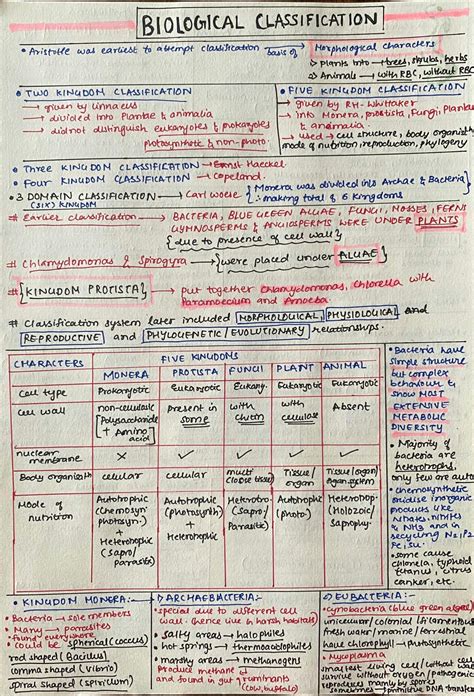 BIOLOGICAL CLASSIFICATION
• Aristotle was earliest to attempt classification basis of → Morphological characters
↳ Plants into → trees, shrubs, herbs
↳ Animals → with RBC, without RBC
• TWO KINGDOM CLASSIFICATION
→ given by Linnaeus
→ divided into Plantae & animalia
→ did not distinguish eukaryotes & prokaryotes
photosynthetic & non-photo.
• FIVE KINGDOM CLASSIFICATION
→ given by RH- Whittaker
→ into Monera, protista, Fungi, Plantae
and animalia
→ used → cell structure, body organisation
mode of nutrition, reproduction, phylogeny
• THREE KINGDOM CLASSIFICATION → Ernst Haeckel
• FOUR KINGDOM CLASSIFICATION → Copeland.
• 3 DOMAIN CLASSIFICATION → Carl woese
(SIX) KINGDOM
Monera was divided into Archae & Bacteria
making total of 6 kingdoms
# Earlier classification → BACTERIA, BLUE GREEN ALGAE, FUNGI, MOSSES, FERNS
GYMNOSPERMS & ANGIOSPERMS WERE UNDER PLANTS
{due to presence of cell wall}
# Chlamydomonas & Spirogyra → {were placed under ALGAE}
# {KINGDOM PROTISTA} → put together Chlamydomonas, Chlorella with
Paramoecium and Amoeba.
# Classification system later included MORPHOLOGICAL, PHYSIOLOGICAL and
REPRODUCTIVE and PHYLOGENETIC/EVOLUTIONARY relationships.
CHARACTERS
FIVE KINGDOMS
MONERA PROTISTA FUNGI PLANT ANIMAL
Cell type Prokaryotic Eukaryotic Eukary. Eukaryotic Eukaryotic
Cell wall non-cellulosic [Polysaccharide + Amino acid] present in some with chitin with cellulose Absent
nuclear membrane × ✓ ✓ ✓ ✓
Body organisation cellular cellular multi (loose tissue) Tissue/organ Tissue/organ/organ system
Mode of nutrition Autotrophic (chemosyn. photosyn.) + Heterotrophic (sapro/parasites) Autotrophic (photosynth) + Heterotrophic Heterotro. (Sapro/Parasitic) Autotrophic (photo.) Heterotrop. (Holozoic/Saprophy.)
• Bacteria have
simple structure
but complex
behaviour &
show MOST
EXTENSIVE
METABOLIC
DIVERSITY
• Majority of
bacteria are
heterotrophs.
only few are auto
• chemosynthetic
oxidise inorganic
products like
& NH3 and in
recycling N2, P
Fe, Su.
• some cause
cholera, typhoid
tetanus, citrus
canker, etc.
• KINGDOM MONERA:
• Bacteria → sole members
• Many → parasites
• found everywhere
• could be spherical (coccus)
rod shaped (Bacillus)
comma shaped (vibrio)
spiral shaped (spirillum)
ARCHAEBACTERIA:
• special due to different cell
wall (hence live in harsh habitats)
• salty areas → halophiles
• hot springs → thermoacidophiles
• marshy areas → methanogens
Produce methane
and found in gut of ruminants
(cow, buffalo)
EUBACTERIA:
• cynobacteria (blue green algae)
unicellular/colonial/filamentous
fresh water/marine/terrestrial
have chlorophyll → photosynthetic
• Mycoplasma
smallest living cell (without cell
survive without oxygen (pathogenic
reproduces mainly by spores
sometimes primitive DNA